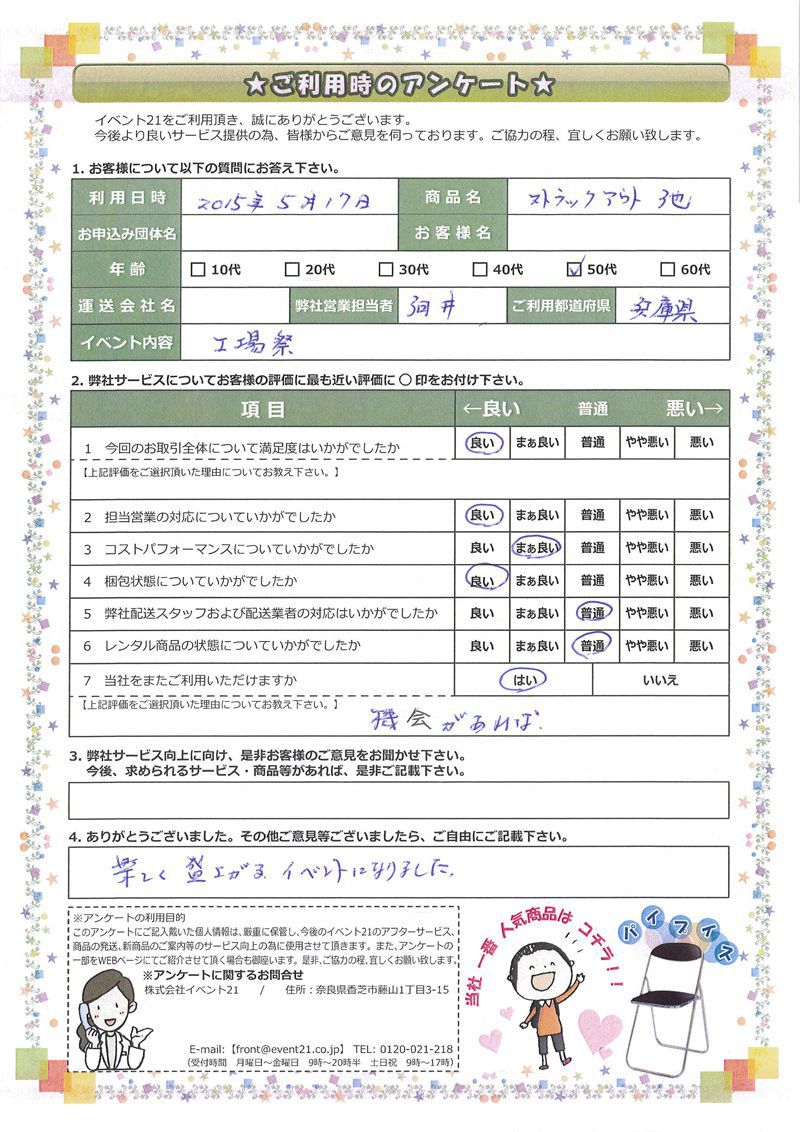 ★ご利用時のアンケート★
イベント21をご利用頂き、誠にありがとうございます。
今後より良いサービス提供の為、皆様からご意見を伺っております。ご協力の程、宜しくお願い致します。
1. お客様について以下の質問にお答え下さい。
利用日時 2015年5月17日 商品名 ストラックアウト 他
お申込み団体名 お客様名
年齢 10代 20代 30代 40代 50代 60代
運送会社名 弊社営業担当者 河井 ご利用都道府県 兵庫県
イベント内容 工場祭
2. 弊社サービスについてお客様の評価に最も近い評価に ○ 印をお付け下さい。
項目 ←良い 普通 悪い→
1 今回のお取引全体について満足度はいかがでしたか 良い まぁ良い 普通 やや悪い 悪い
【上記評価をご選択頂いた理由についてお教え下さい。】
2 担当営業の対応についていかがでしたか 良い まぁ良い 普通 やや悪い 悪い
3 コストパフォーマンスについていかがでしたか 良い まぁ良い 普通 やや悪い 悪い
4 梱包状態についていかがでしたか 良い まぁ良い 普通 やや悪い 悪い
5 弊社配送スタッフおよび配送業者の対応はいかがでしたか 良い まぁ良い 普通 やや悪い 悪い
6 レンタル商品の状態についていかがでしたか 良い まぁ良い 普通 やや悪い 悪い
7 当社をまたご利用いただけますか はい いいえ
【上記評価をご選択頂いた理由についてお教え下さい。】
機会があれば.
3. 弊社サービス向上に向け、是非お客様のご意見をお聞かせ下さい。
今後、求められるサービス・商品等があれば、是非ご記載下さい。
4. ありがとうございました。その他ご意見等ございましたら、ご自由にご記載下さい。
楽しく盛上がるイベントになりました.
※アンケートの利用目的
このアンケートにご記入戴いた個人情報は、厳重に保管し、今後のイベント21のアフターサービス、
商品の発送、新商品のご案内等のサービス向上の為に使用させて頂きます。また、アンケートの
一部をWEBページにてご紹介させて頂く場合も御座います。是非、ご協力の程、宜しくお願い致します。
※アンケートに関するお問合せ
株式会社イベント21 / 住所:奈良県香芝市藤山1丁目3-15
E-mail:【front@event21.co.jp】 TEL: 0120-021-218
（受付時間 月曜日～金曜日 9時～20時半 土日祝 9時～17時）
当社一番人気商品はコチラ!!
パイプイス